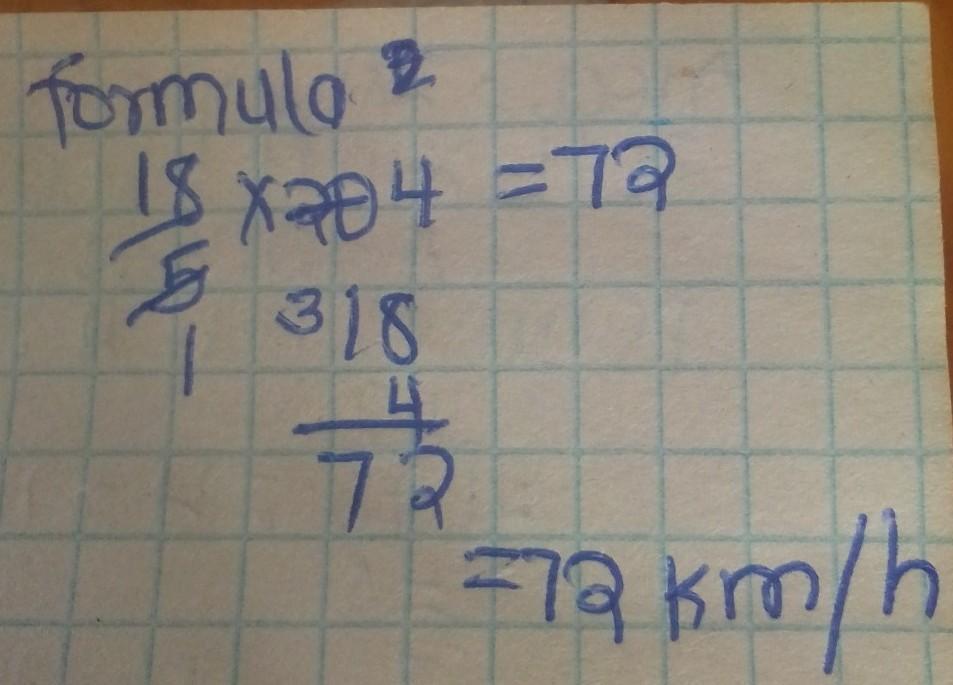 formula 2
18 x 20 4 = 72
5
1 3 18
4
72
= 72 km/h